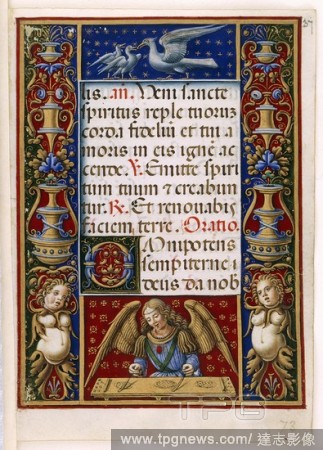 37
lis. an. Veni sancte
spiritus reple tuoruz
corda fidelium et tui a
moris in eis ignē ac
cende. V. Emitte spiri
tum tuum & creabun
tur. R. Et renouabis
faciem terre. Oratio.
Omnipotens
sempiterne
deus da nob
TPG
73
www.tpgnews.com／達志影像